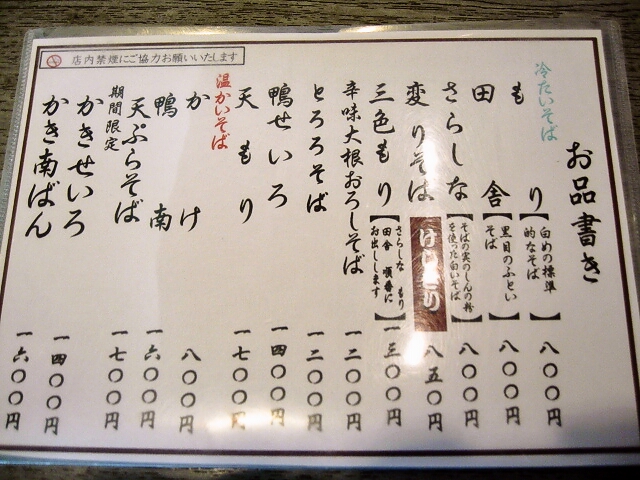 店内禁煙にご協力お願いいたします
お品書き
冷たいそば
もり
【白めの標準
的なそば】
八〇〇円
田舎
【黒目のふとい
そば】
八〇〇円
さらしな
【そばの実のしんの粉
を使った白いそば】
八〇〇円
変りそば
けしきり
八五〇円
三色もり
【さらしな もり
田舎 順番に
お出しします】
一三〇〇円
辛味大根おろしそば
一二〇〇円
とろろそば
一二〇〇円
鴨せいろ
一四〇〇円
天もり
一七〇〇円
温かいそば
かけ
八〇〇円
鴨南
一六〇〇円
天ぷらそば
一七〇〇円
期間限定
かきせいろ
一四〇〇円
かき南ばん
一六〇〇円